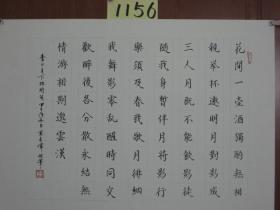 1156
花間一壺酒獨酌無相
親舉杯邀明月對影成
三人月既不解飲影徒
隨我身暫伴月將影行
樂須及春我歌月徘徊
我舞影零亂醒時同交
歡醉後各分散永結無
情游相期邈雲漢